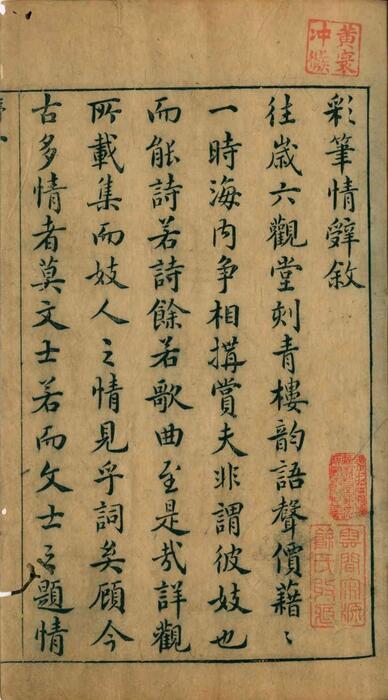 彩筆情辭敘
往歲六觀堂刻青樓韵語聲價藉〻
一時海内争相搆賞夫非謂彼妓也
而能詩若詩餘若歌曲至是㢤詳觀
所載集而妓人之情見乎詞矣顧今
古多情者莫文士若而文士之題情